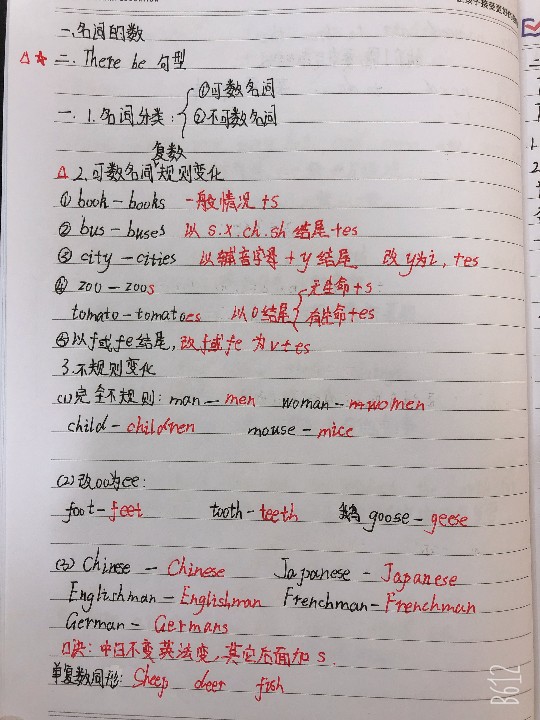 一.名词的数
△★二. There be 句型
一. 1.名词分类: ①可数名词
②不可数名词
复数
△2.可数名词规则变化
① book - books 一般情况 +s
② bus - buses 以 s.x.ch.sh 结尾 +es
③ city - cities 以辅音字母 + y 结尾 改 y为i, +es
④ zoo - zoos 无生命 + s
tomato - tomatoes 以 o 结尾 有生命 +es
⑤以f或fe结尾, 改f或fe 为 v+es
3.不规则变化
(1)完全不规则: man - men woman - women
child - children mouse - mice
(2)改oo为ee:
foot - feet tooth - teeth 鹅 goose - geese
(3) Chinese - Chinese Japanese - Japanese
Englishman - Englishman Frenchman - Frenchman
German - Germans
口决: 中日不变英法变, 其它后面加 s.
单复数同形: Sheep deer fish
B612